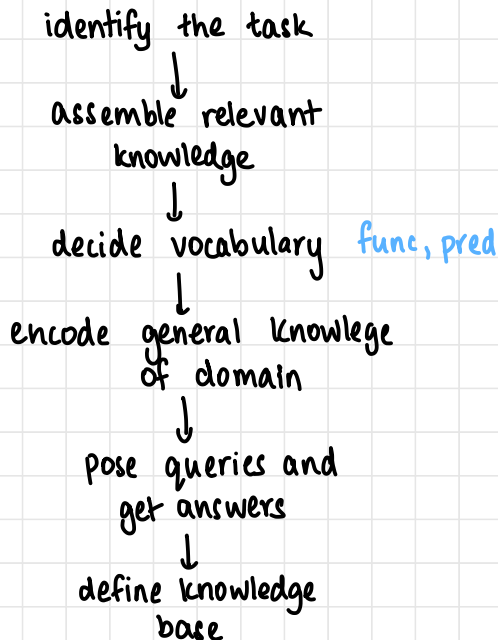 identify the task
assemble relevant
knowledge
decide vocabulary func, pred
encode general knowlege
of domain
pose queries and
get answers
define knowledge
base